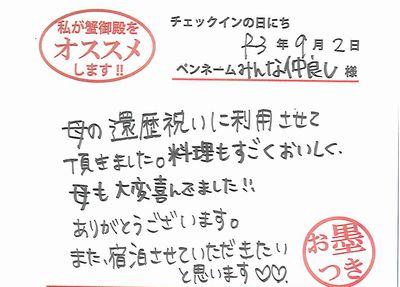 私が蟹御殿を
オススメ
します!!
チェックインの日にち
R3年9月2日
ペンネームみんな仲良し様
母の還歴祝いに利用させて
頂きました。料理もすごくおいしく、
母も大変喜んでました!!
ありがとうございます。
また、宿泊させていただきたい
と思います♡♡.
お墨
つき